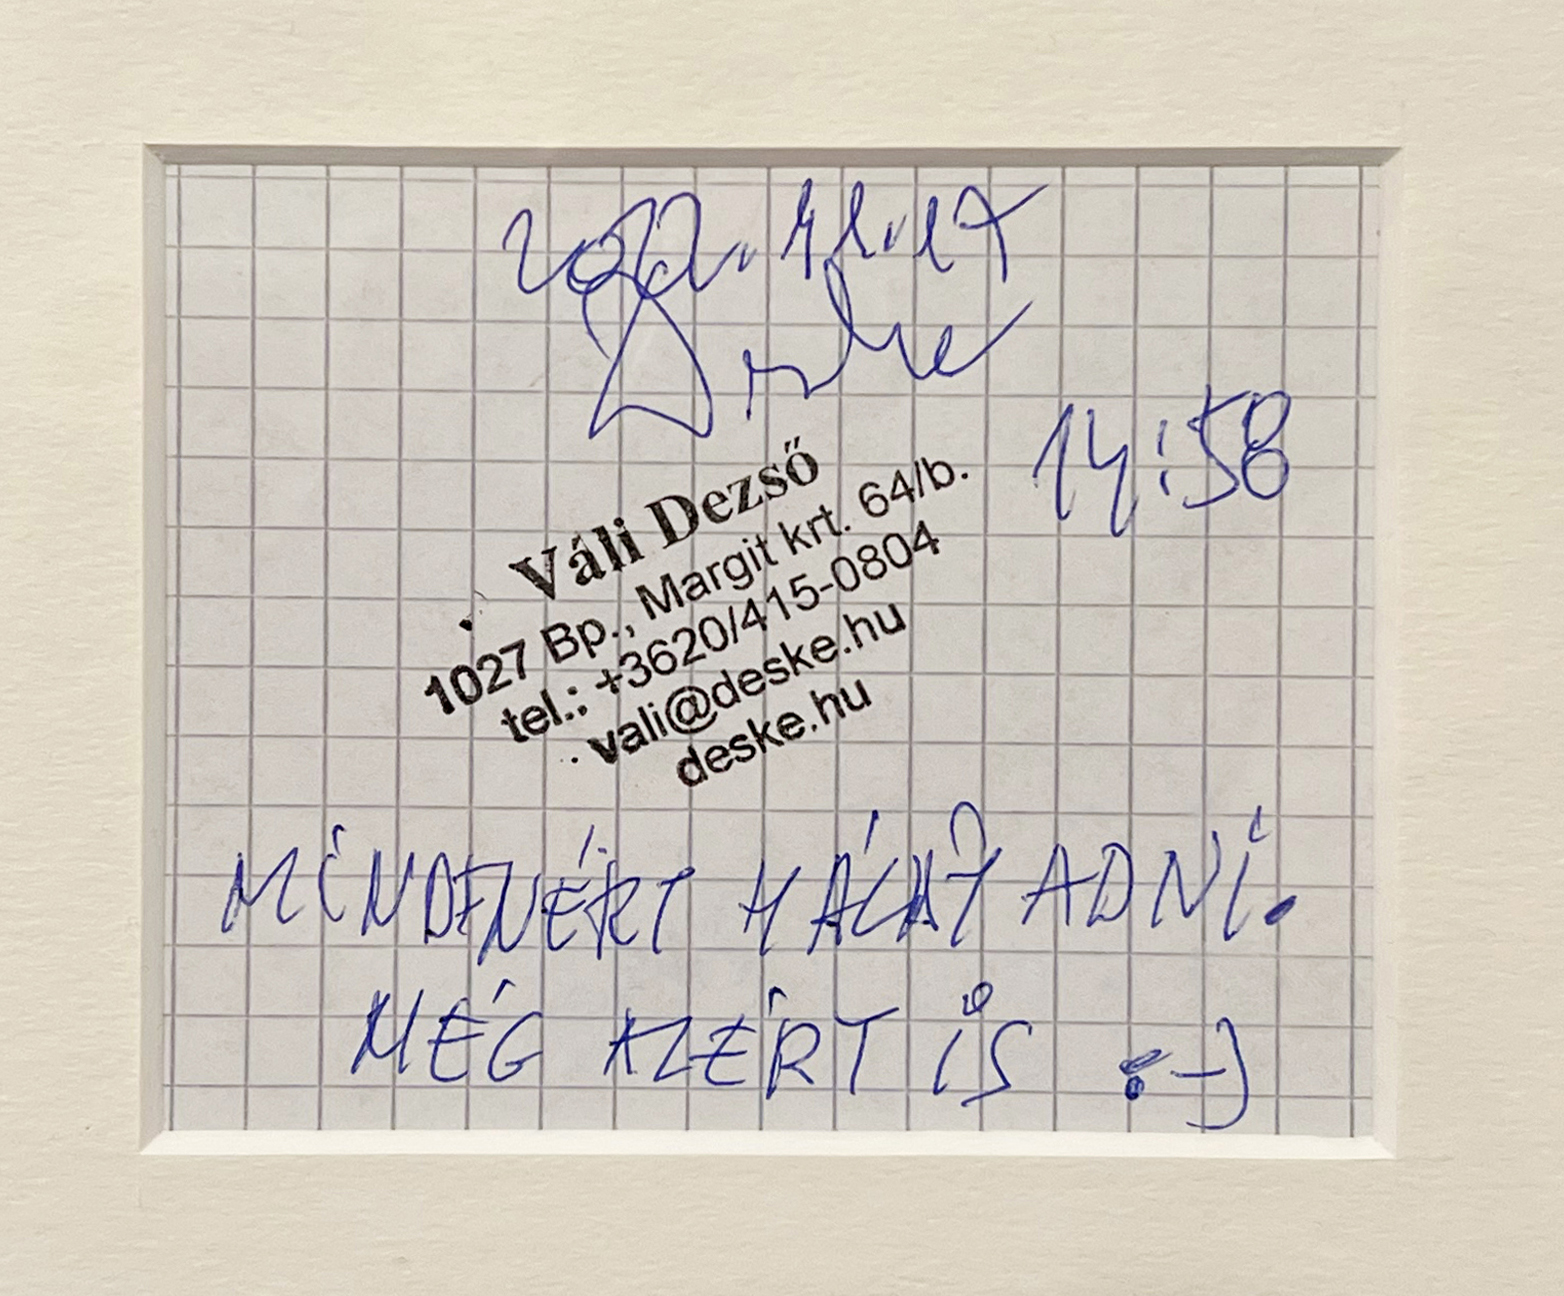 Deske
14:58
Váli Dezső
1027 Bp., Margit krt. 64/b.
tel.: +3620/415-0804
vali@deske.hu
deske.hu
MINDENÉRT HÁLÁT ADNI.
MÉG AZÉRT IS :-)